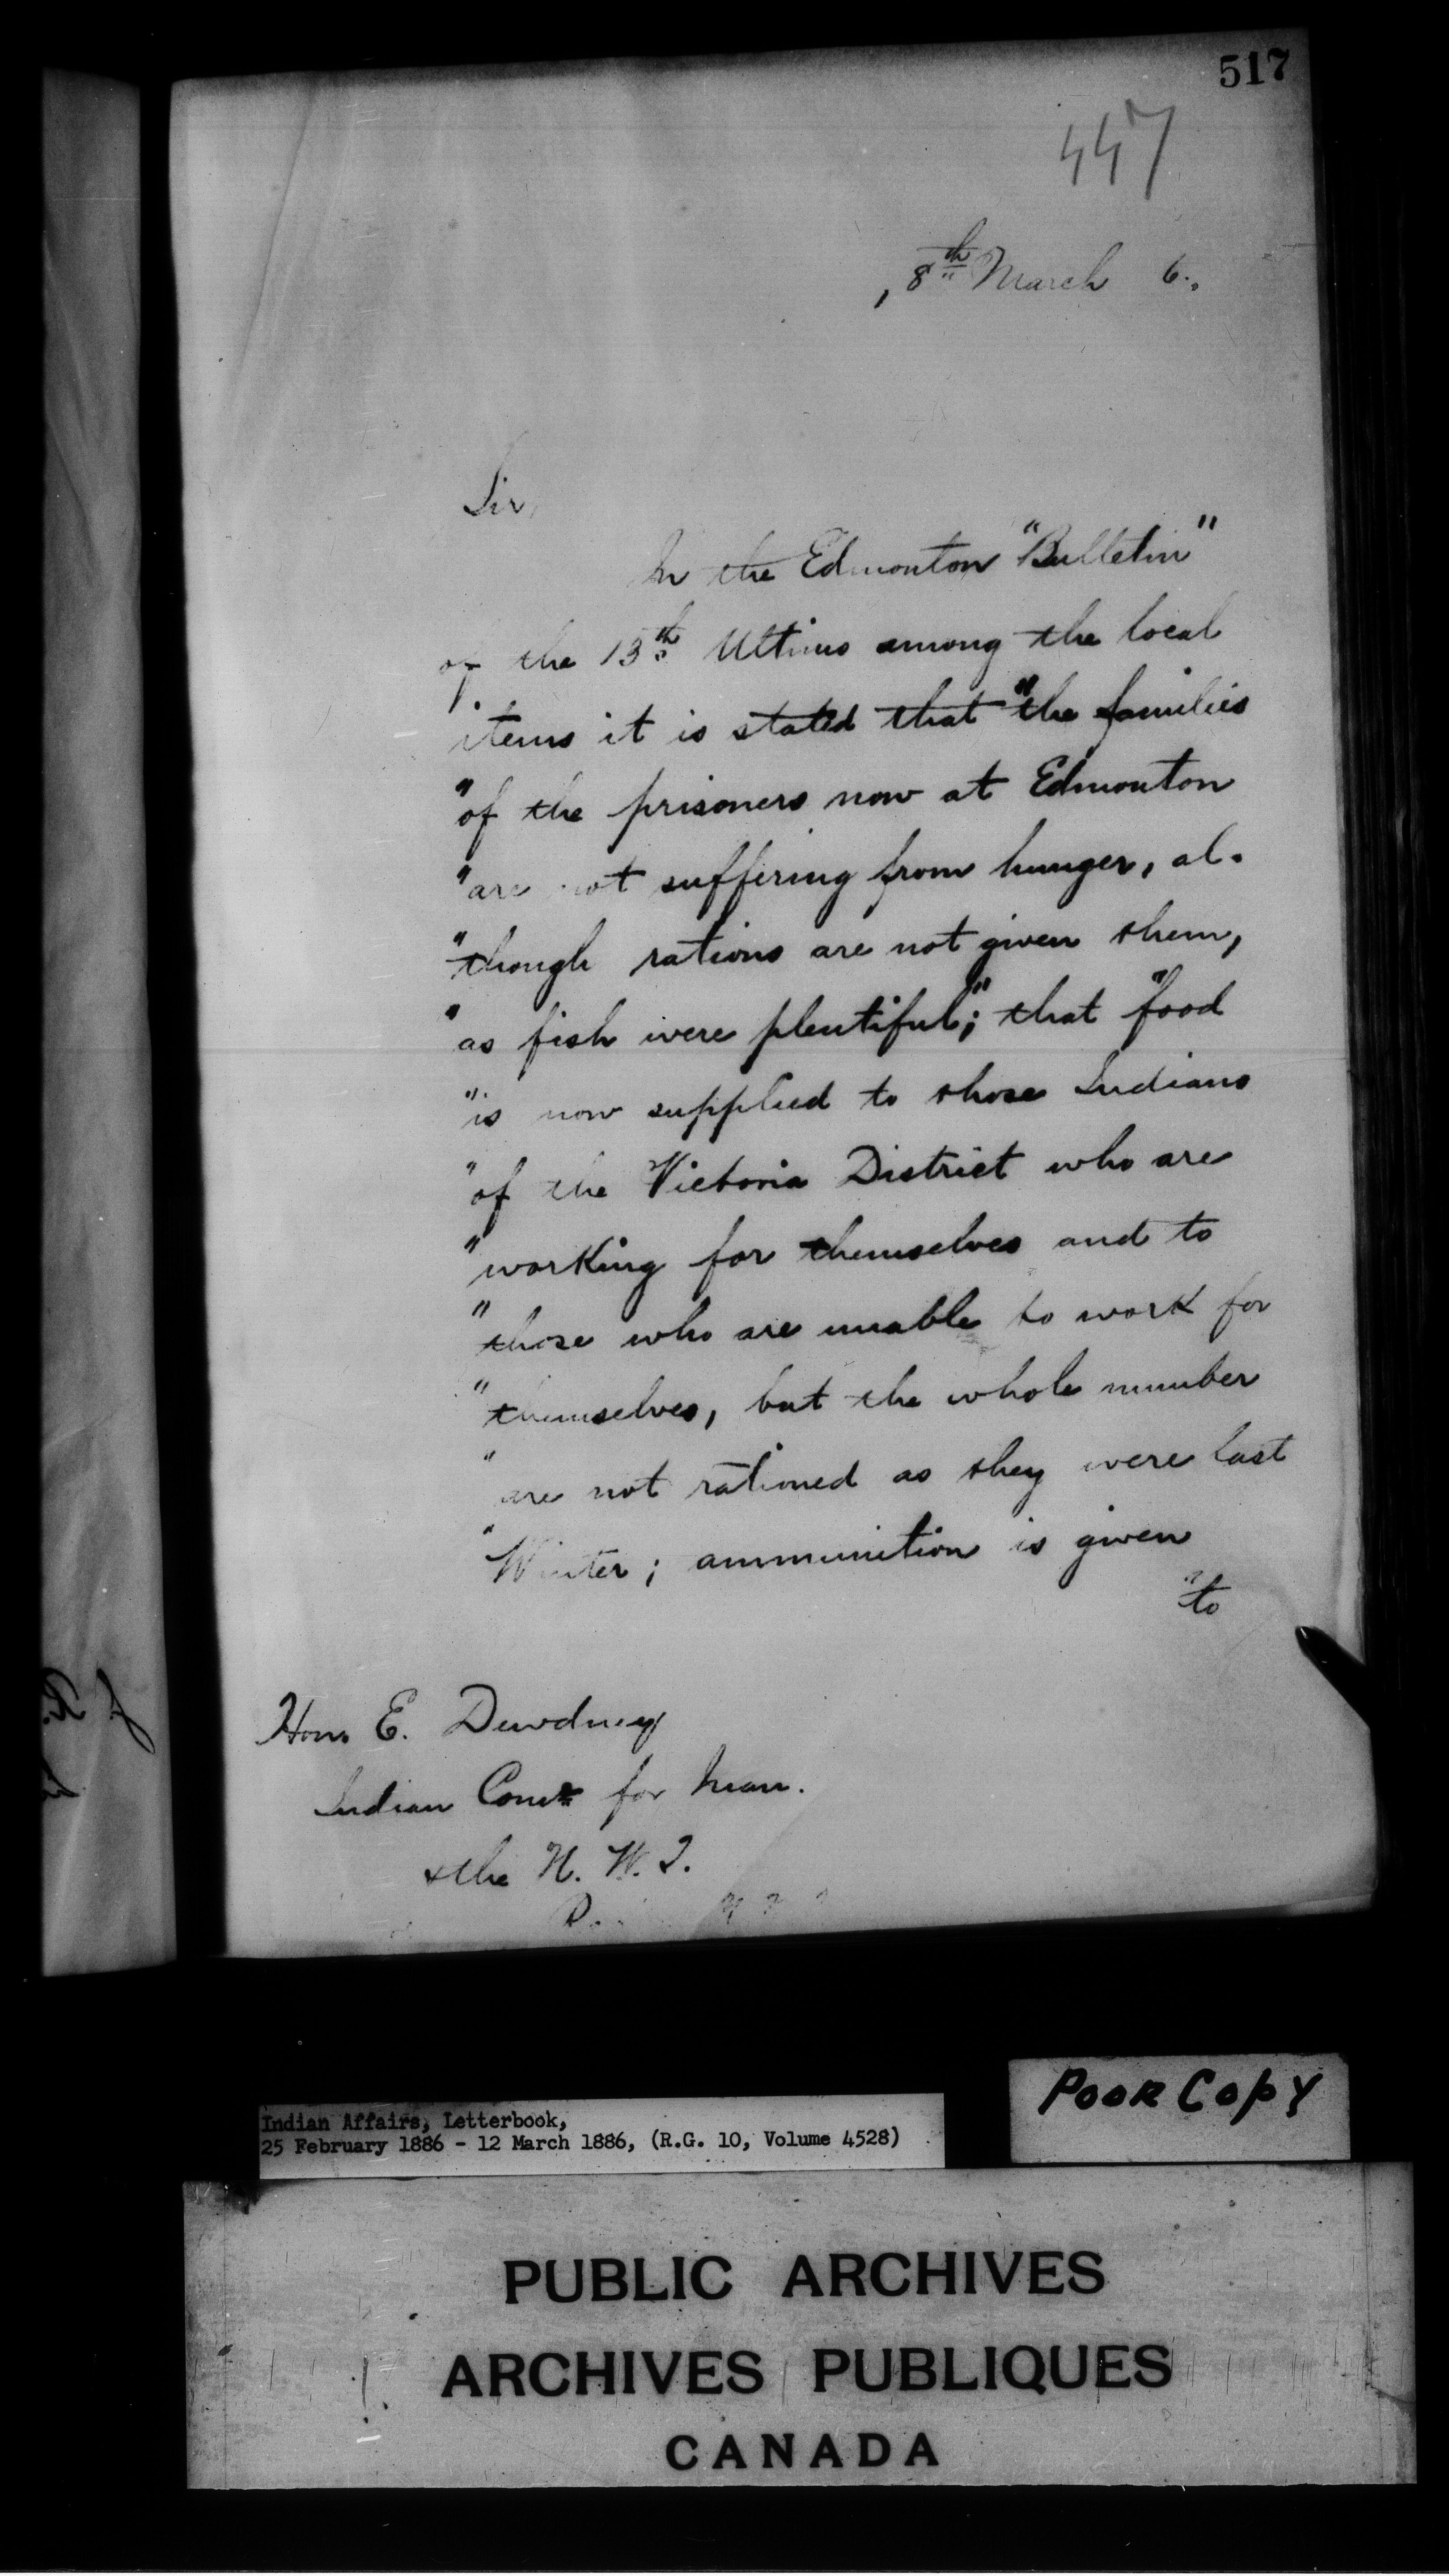 517
447
, 8th March 6.
Sir,
In the Edmonton "Bulletin"
of the 13th Ultimo among the local
items it is stated that "the families
"of the prisoners now at Edmonton
"are not suffering from hunger, al-
"though rations are not given them,
"as fish were plentiful"; that "food
"is now supplied to those Indians
"of the Victoria District who are
"working for themselves and to
"those who are unable to work for
"themselves, but the whole number
"are not rationed as they were last
"Winter; ammunition is given
"to
Hon. E. Dewdney
Indian Comr. for Man.
& the N. W. T.
Indian Affairs, Letterbook,
25 February 1886 - 12 March 1886, (R.G. 10, Volume 4528)
Poor Copy
PUBLIC ARCHIVES
ARCHIVES PUBLIQUES
CANADA